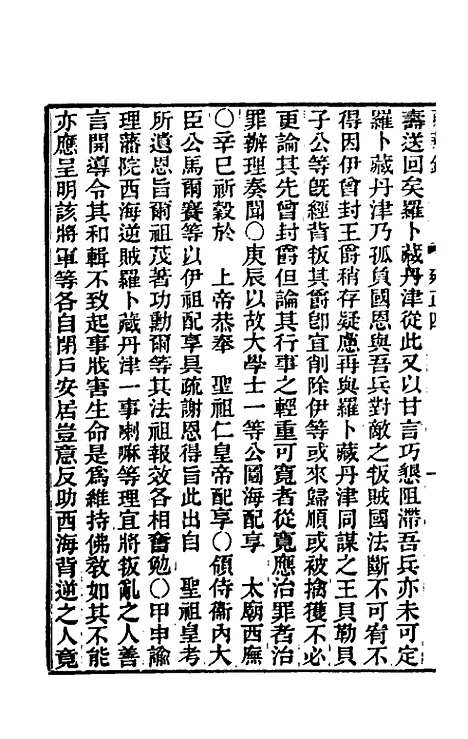 壽送回矣羅卜藏丹津從此又以甘言巧懇阻滯吾兵亦未可定
羅卜藏丹津乃孤負國恩與吾兵對敵之叛賊國法斷不可宥不
得因伊曾封王爵稍存疑慮再與羅卜藏丹津同謀之王貝勒貝
子公等旣經背叛其爵卽宜削除伊等或來歸順或被擒獲不必
更論其先曾封爵但論其行事之輕重可寬者從寬應治罪者治
罪辦理奏聞〇庚辰以故大學士一等公圖海配享　太廟西廡
〇辛巳祈穀於　上帝恭奉　聖祖仁皇帝配享〇領侍衞內大
臣公馬爾賽等以伊祖配享具疏謝恩得旨此出自　聖祖皇考
所遺恩旨爾祖茂著功勳爾等其法祖報效各相奮勉〇甲申諭
理藩院西海逆賊羅卜藏丹津一事喇嘛等理宜將叛亂之人善
言開導令其和輯不致起事戕害生命是爲維持佛敎如其不能
亦應呈明該將軍等各自閉戶安居豈意反助西海背逆之人竟